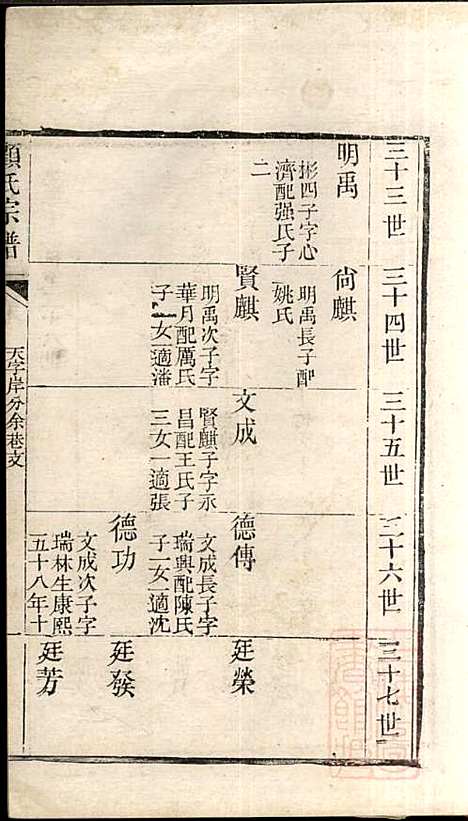 三十三世
三十四世
三十五世
三十六世
三十七世
明禹
彬四子字心
濟配强氏子
二
尙麒
明禹長子配
姚氏
賢麒
明禹次子字
華月配厲氏
子一女一適潘
文成
賢麒子字永
昌配王氏子
三女一適張
德傳
文成長子字
瑞興配陳氏
子一女一適沈
德功
文成次子字
瑞林生康熙
五十八年十
廷榮
廷發
廷芳
顧氏宗譜
天字岸分余巷支